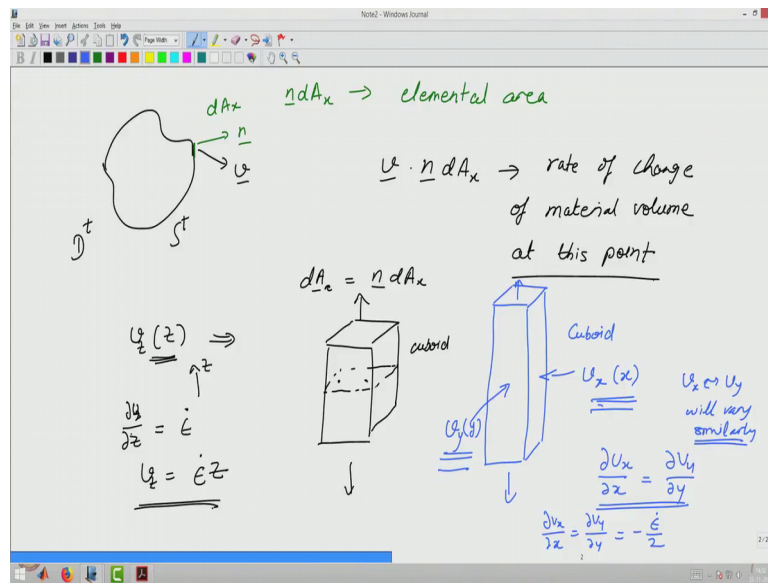 Note2 - Windows Journal
File Edit View Insert Actions Tools Help
Page Width
B I
dAx
n
v
n dAx → elemental area
v . n dAx → rate of change
of material volume
at this point
D^t
S^t
dAx = n dAx
cuboid
v_z (z) ⇒
z
∂v_z/∂z = ε̇
v_z = ε̇ z
Cuboid
v_x (x)
v_y (y)
v_x ↔ v_y
will vary
similarly
∂v_x/∂x = ∂v_y/∂y
∂v_x/∂x = ∂v_y/∂y = - ε̇/2
2
2/2